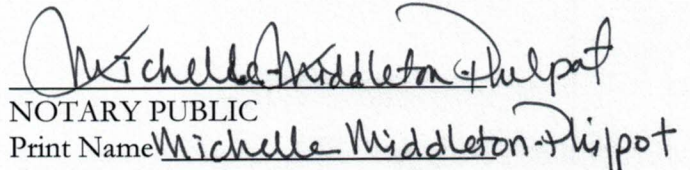 Michelle Middleton-Philpot
NOTARY PUBLIC
Print Name Michelle Middleton-Philpot